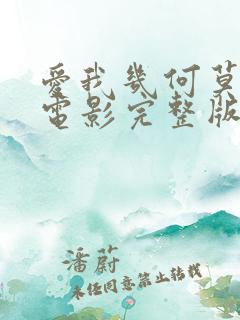 愛我幾何莫
電影完整版
潘蔚
未任同意禁止转载